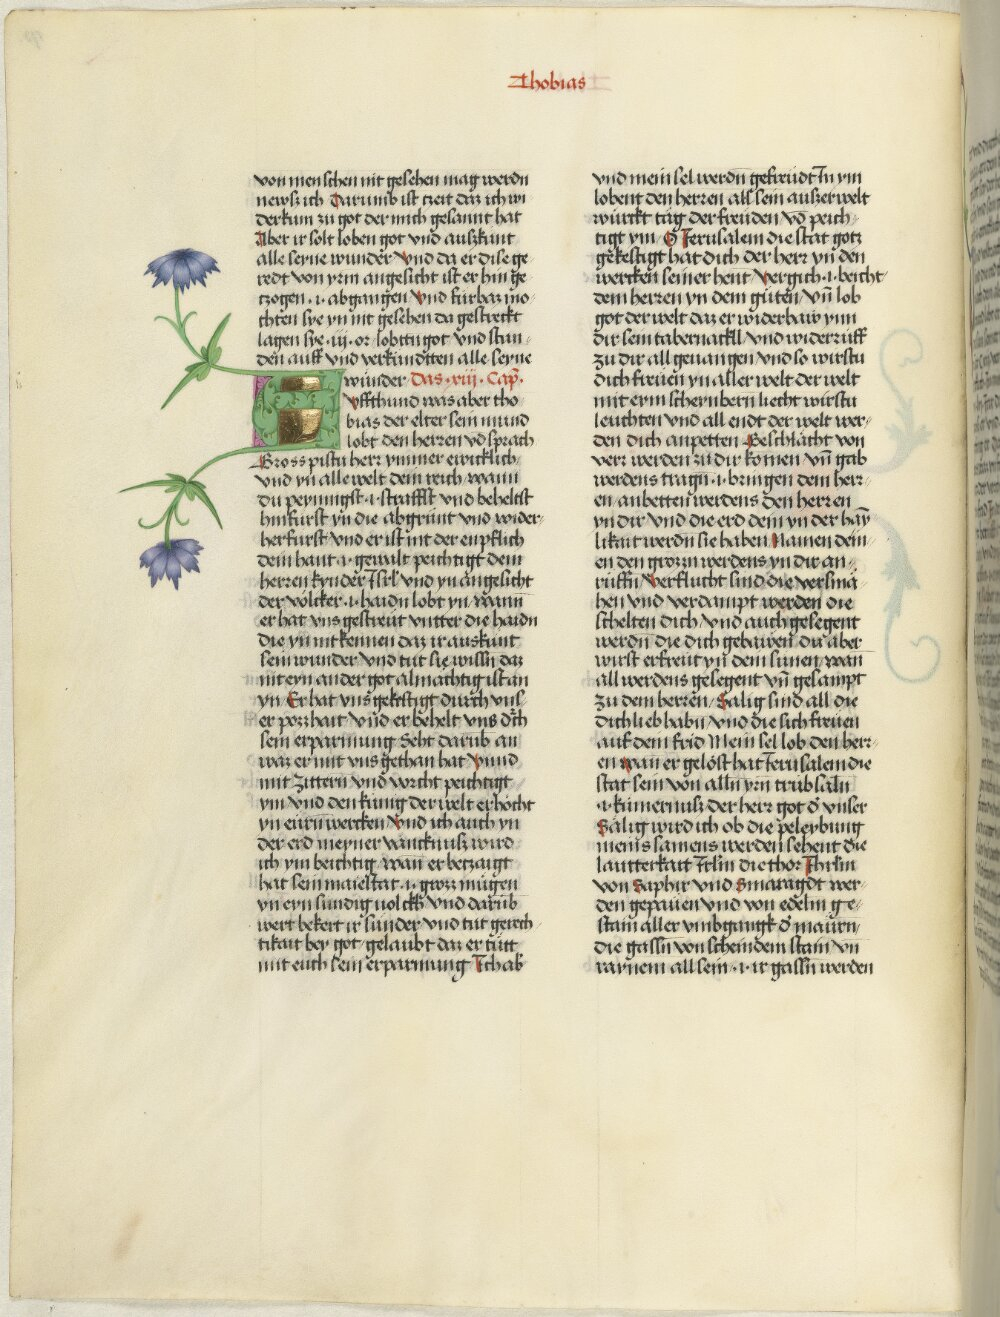 Thobias
von menschen nit gesehen mag werdn
newsz ich Darumb ist tzeit daz ich wi
derkum zu got der mich gesannt hat
Aber ir solt loben got vnd auszkunt
alle seyne wunder Vnd da er dise ge
redt von yrm angesicht ist er hin ge
tzogen .i. abgangen Vnd furbaz mo
chten sye yn nit gesehen da gestreckt
lagen sye .iij. or lobtn got vnd stun
den auff vnd verkundtten alle seyne
wunder Das .xiij. Cap.
Vffthund was aber tho
bias der elter sein mund
lobt den herren vnd sprach
Gross pistu herr ymmer ewicklich
vnd yn alle welt dein reich wann
du peynnigst .i. straffst vnd beheltst
hinfurst yn die abgrunt vnd wider
herfurst vnd er ist nit der enpflich
dem hant .i. gewalt peichtigt dem
herren kynder Isrl vnd yn angesicht
der völcker .i. haidn lobt yn wann
er hat vns gestreut vntter die haidn
die yn nit kennen daz ir auskunt
sein wunder vnd tut sie wissn daz
nit eyn ander got almachtig ist an
yn Er hat vns gekestigt durch vns
er pozhait vnd er behelt vns dch
sein erparmung Seht darub an
waz er mit vns gethan hat Vnnd
mit zittern vnd vorcht peichtigt
ym vnd den kunig der welt erhöcht
yn eurn wercken Vnd ich auch yn
der erd meyner vancknusz wird
ich ym beichtig wan er betzaigt
hat sein maiestat .i. grozz mugen
yn eyn sundig volck vnd darub
wert bekert ir sunder vnd tut gerech
tikait bey got gelaubt daz er tutt
mit euch sein erparmung Ich ab
vnd mein sel werdn gefreudt In ym
lobent den herren all sein auszerwelt
würckt tag der freuden vnd peich
tigt ym O Jerusalem die stat gotz
gekestigt hat dich der herr yn den
wercken seiner hent Vergich .i. beicht
dem herren yn dem guten vnn lob
got der welt daz er widerbaw ynn
dir sein tabernackll vnd widerruff
zu dir all geuangen vnd so wirstu
dich freuen yn aller welt der welt
mit erm scheynbern liecht wirstu
leuchten vnd all endt der welt wer
den dich anpetten Geschlächt von
verr werden zu dir komen vnn gab
werdens tragn .i. bringen dem herr
en anbetten werdens den herren
yn dir vnd die erd dein yn der hay
likait werdn sie haben Namen dem
en den grozzn werdens yn dir an
ruffn Verflucht sind die versma
hen vnd verdampt werden die
schelten dich vnd auch gesegent
werdn die dich gebawen du aber
wirst erfreut yn dem sunen wan
all werdens gesegent vnn gesampt
zu dem herren Sälig sind all die
dich lieb habn vnd die sich freuen
auf dem frid Mein sel lob den herr
en wan er gelöst hat Jerusalem die
stat sein von alln yrn trubsaln
.i. kumernusz der herr got d vnser
Sälig wird ich ob die peleybung
meins samens werden sehent die
lautterkait Jrlm die thor Ihrlm
von Saphir vnd Smaragdt wer
den gepauen vnd von edelm ge
stain aller vmbgangk d mauren
die gassn von scheindem stain vn
raynem all sein .i. ir gassn werden